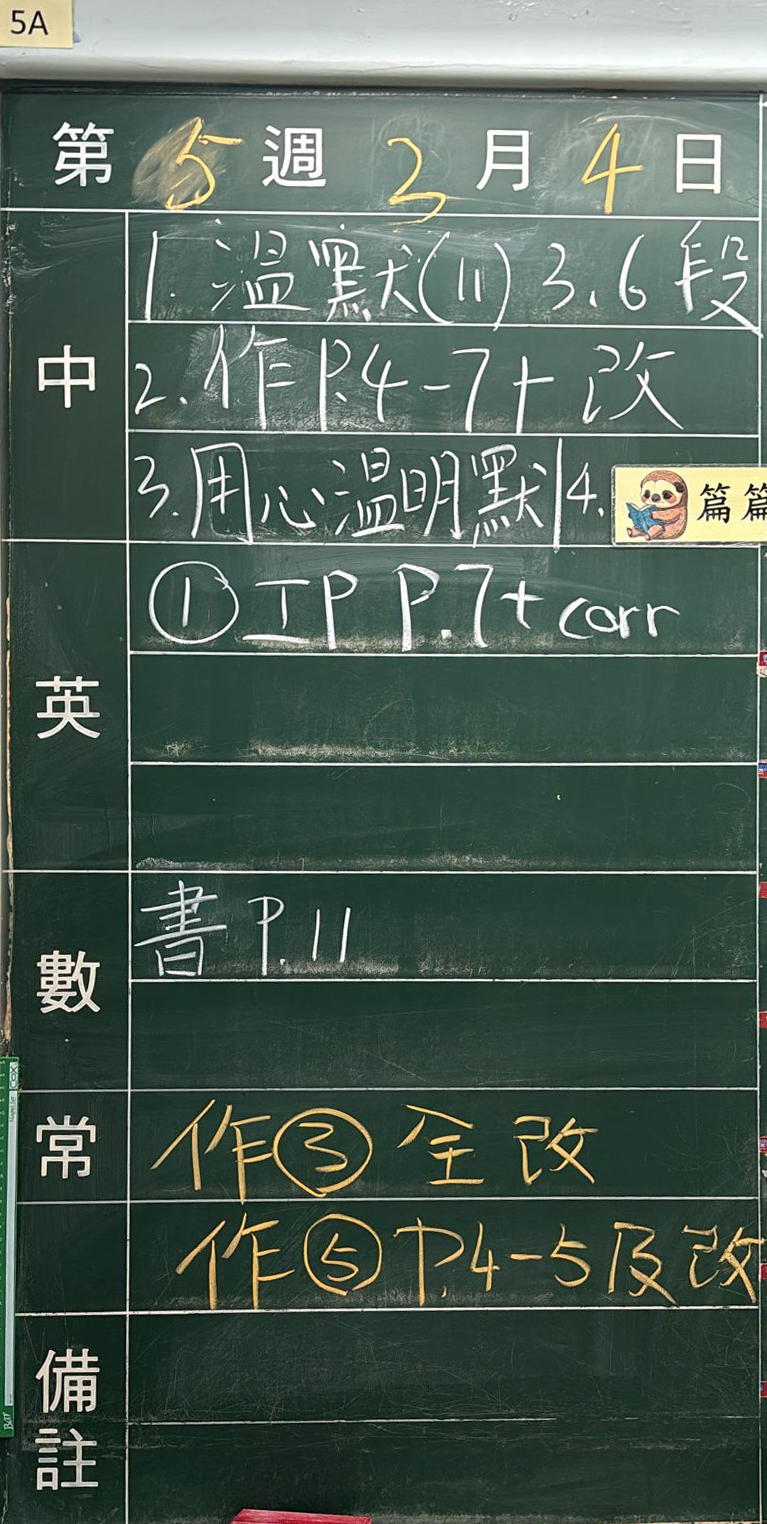 5A
第5週3月4日
中
1. 温默(11) 3、6段
2. 作 P.4-7+改
3. 用心温明默 4. 篇篇
英
① IP P.7+corr
數
書 P.11
常
作③全改
作⑤P.4-5及改
備註